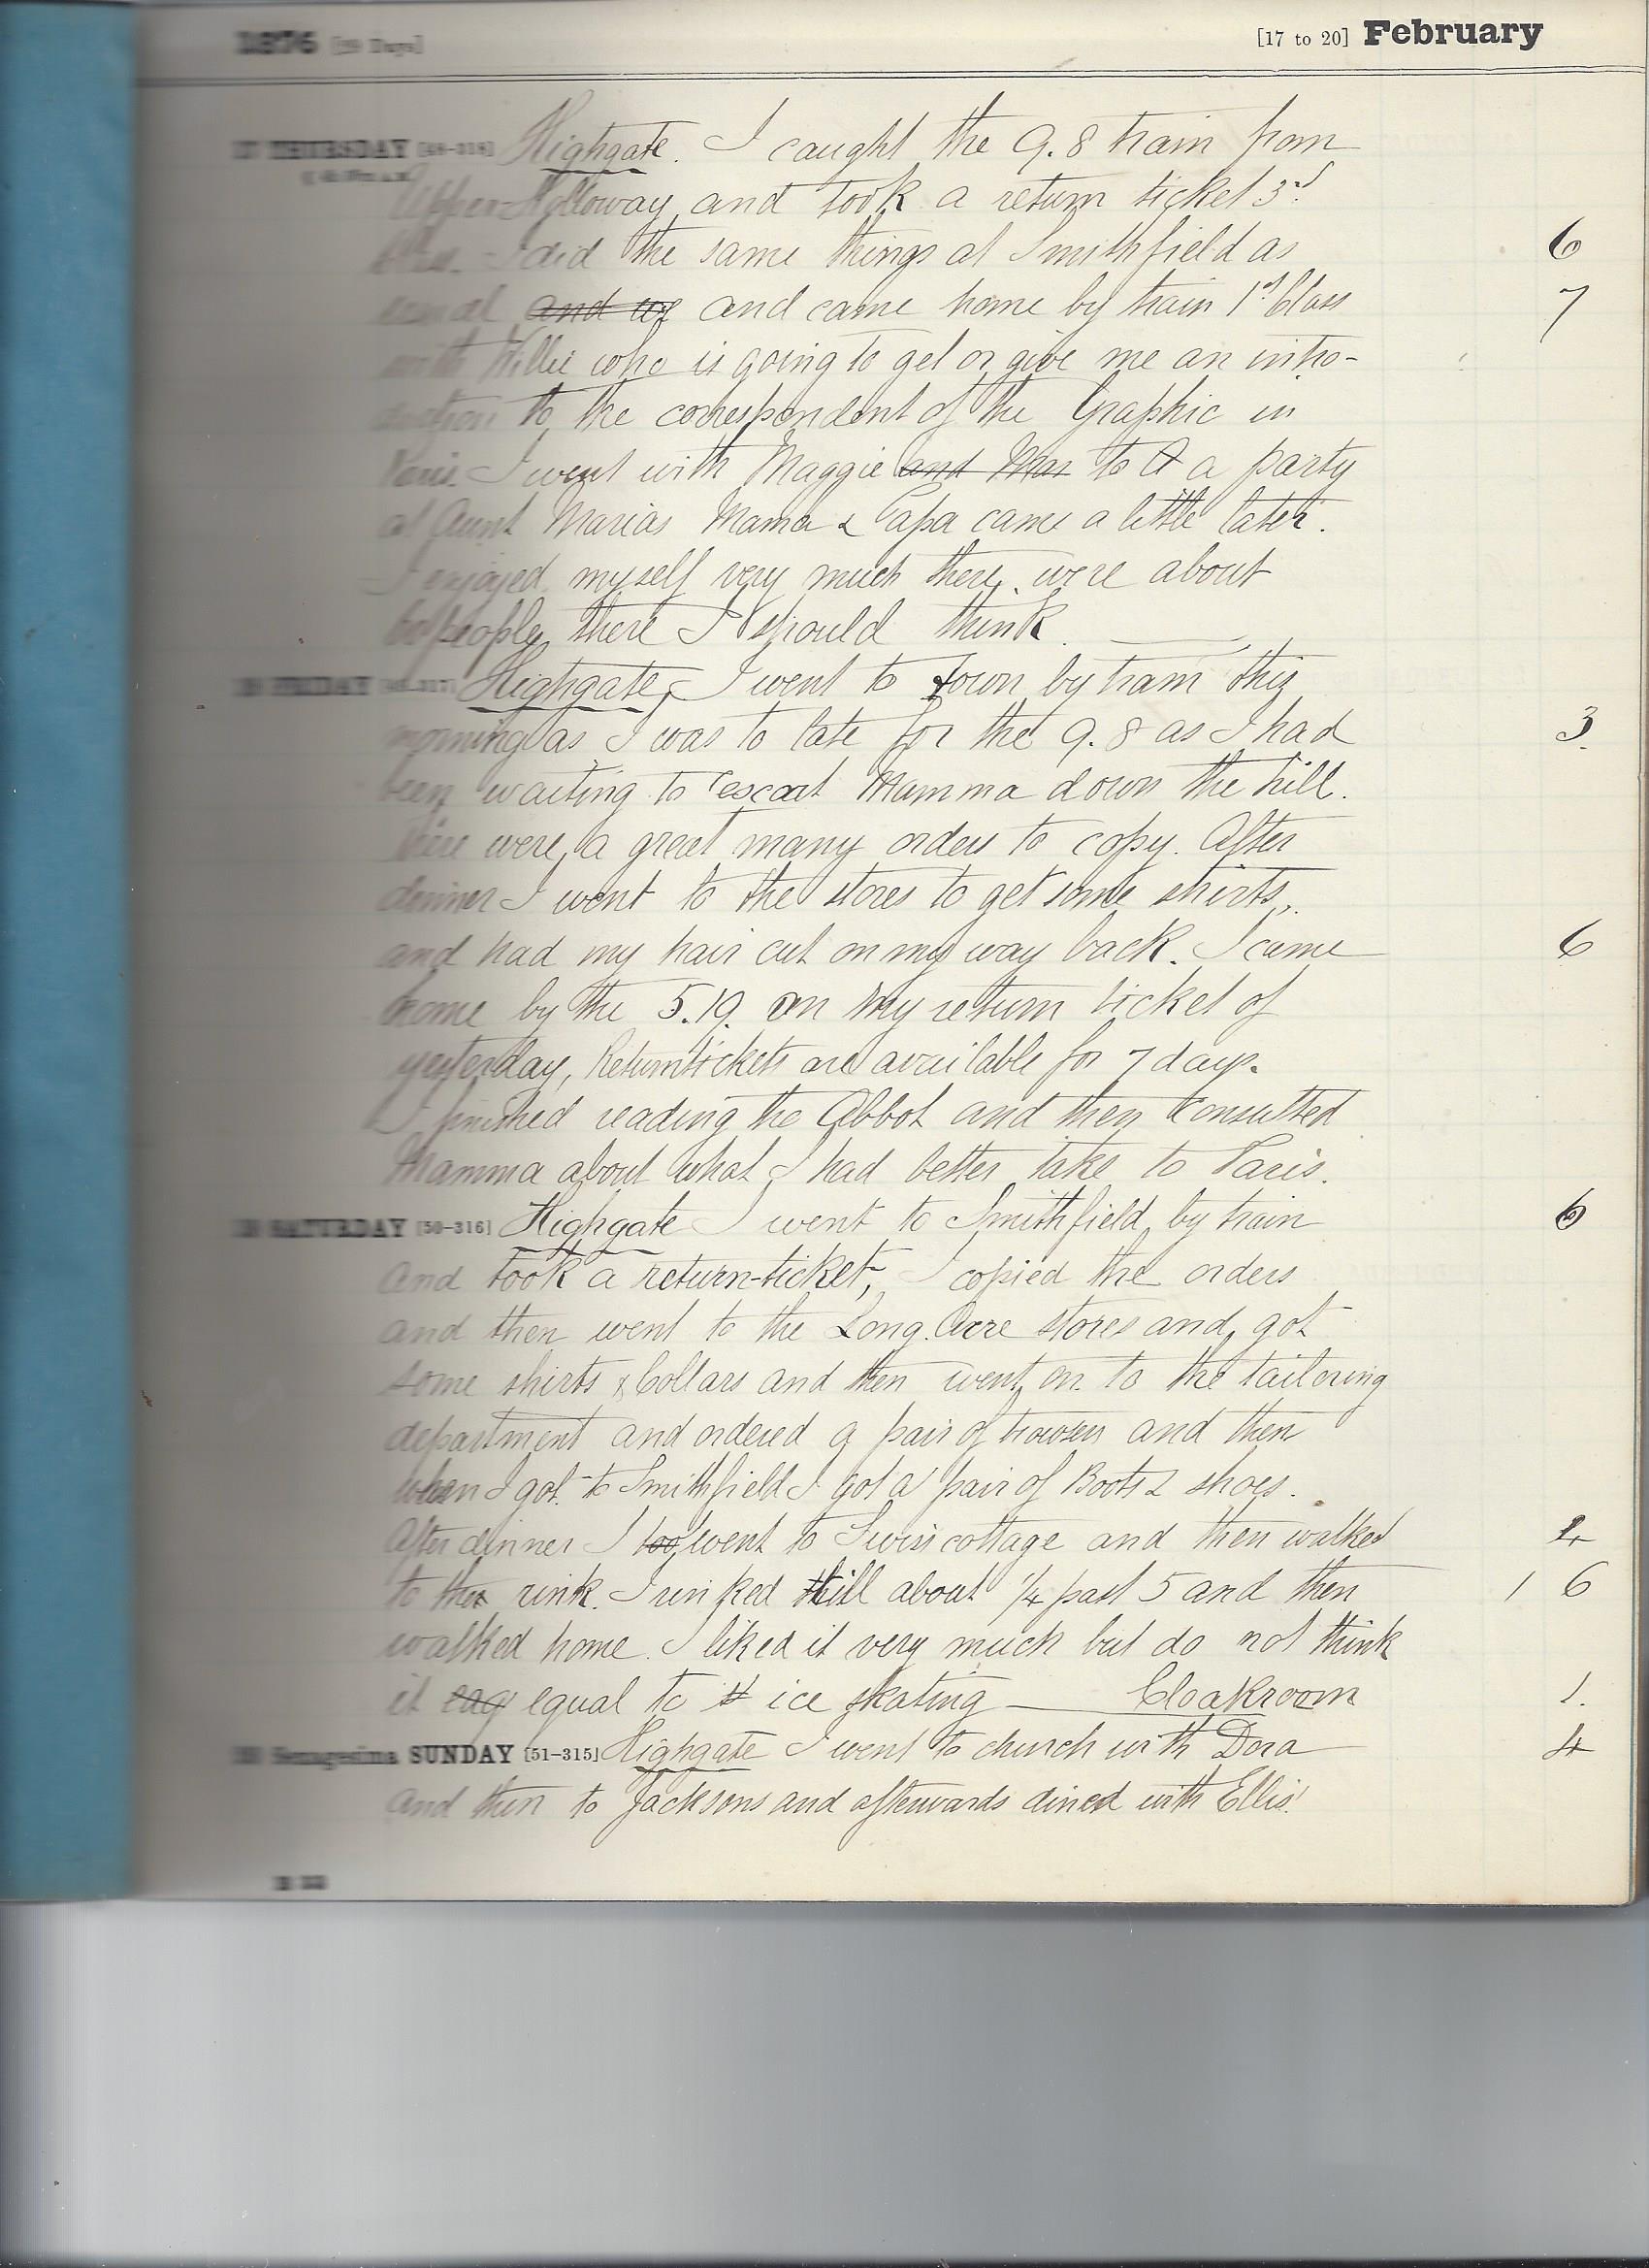 1876 [29 Days] [17 to 20] February
17 THURSDAY [48-318] Highgate. I caught the 9.8 train from
Upper Holloway and took a return ticket 3rd
Class. I did the same things at Smithfield as 6
usual and we and came home by train 1st Class 7
with Willie who is going to get or give me an intro-
duction to the correspondent of the Graphic in
Paris. I went with Maggie and Mar to A a party
at Aunt Marias Mama & Papa came a little later.
I enjoyed myself very much there were about
people there I should think.
18 FRIDAY [49-317] Highgate, I went to town by tram this
morning as I was to late for the 9.8 as I had 3
been waiting to escort Mamma down the hill.
were a great many orders to copy. After
dinner I went to the stores to get some shirts,
and had my hair cut on my way back. I came 6
home by the 5.19. on my return ticket of
yesterday, Return tickets are available for 7 days.
I finished reading the Abbot and then consulted
Mamma about what I had better take to Paris.
19 SATURDAY [50-316] Highgate I went to Smithfield, by train 6
and took a return-ticket, I copied the orders
and then went to the Long Acre stores and got
some shirts & Collars and then went on to the tailoring
department and ordered a pair of trowsers and then
when I got to Smithfield I got a pair of Boots & shoes.
After dinner I too went to Swiss cottage and then walked
to the rink. I rinked till about 1/4 past 5 and then 1 6
walked home. I liked it very much but do not think
it eaq equal to it ice skating — Cloakroom 1.
20 Sexagesima SUNDAY [51-315] Highgate I went to church with Dora 4
and then to Jacksons and afterwards dined with Ellis.